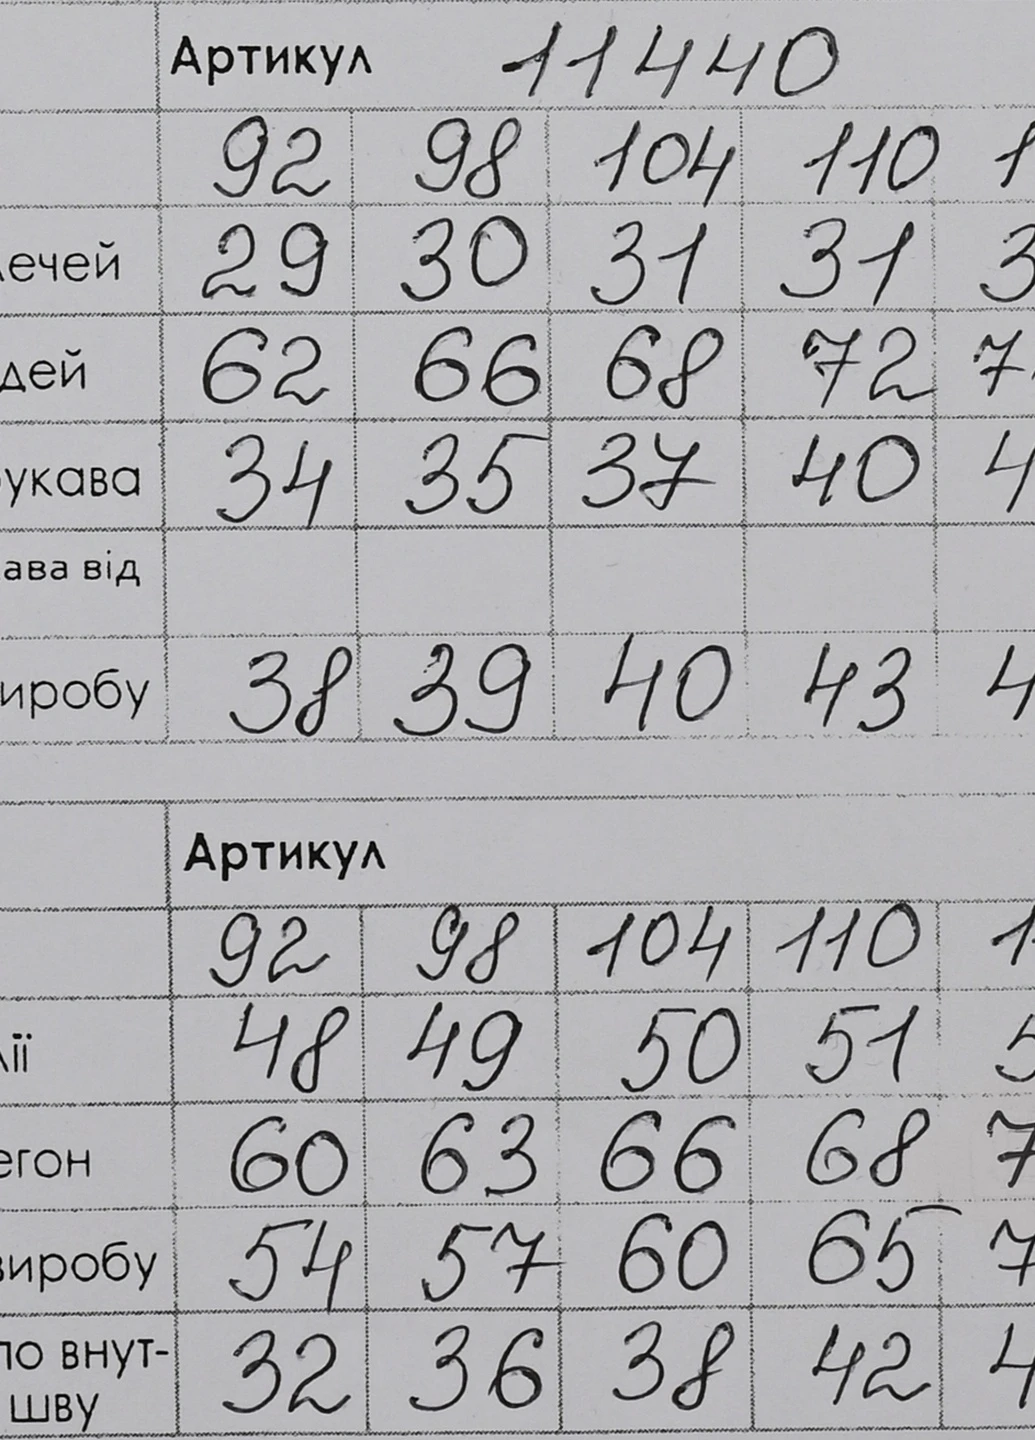 Артикул 11440
92 98 104 110 1
лечей 29 30 31 31 3
дей 62 66 68 72 7
рукава 34 35 37 40 4
ава від
иробу 38 39 40 43 4
Артикул
92 98 104 110 1
лії 48 49 50 51 5
егон 60 63 66 68 7
виробу 54 57 60 65 7
по внут-
шву 32 36 38 42 4